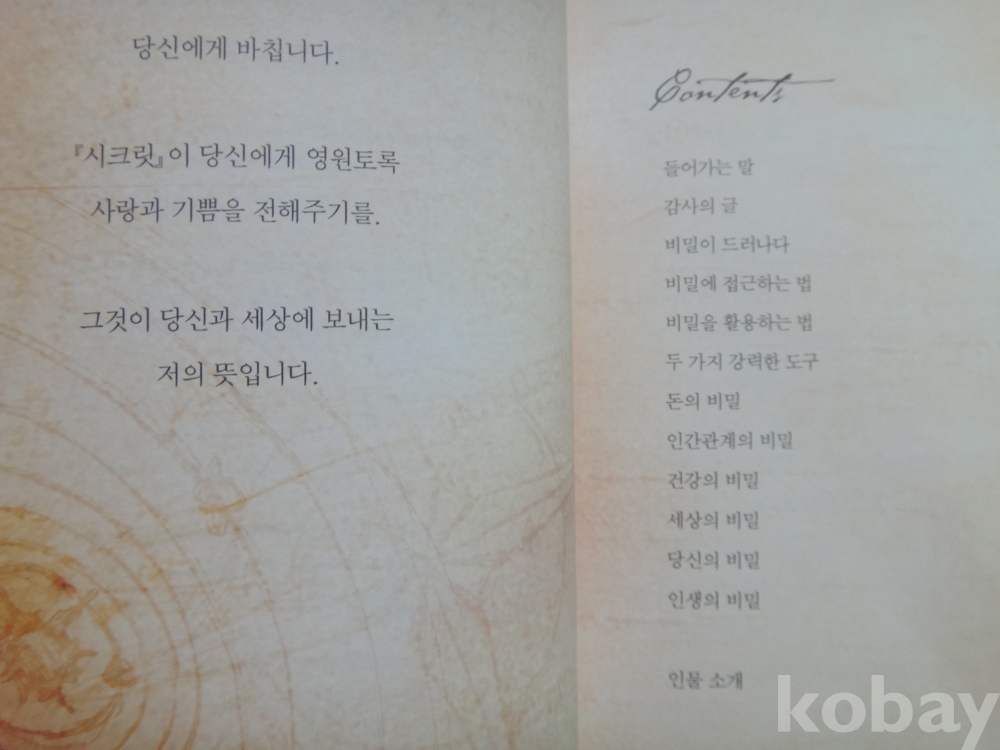 당신에게 바칩니다.
『시크릿』이 당신에게 영원토록
사랑과 기쁨을 전해주기를.
그것이 당신과 세상에 보내는
저의 뜻입니다.
Contents
들어가는 말
감사의 글
비밀이 드러나다
비밀에 접근하는 법
비밀을 활용하는 법
두 가지 강력한 도구
돈의 비밀
인간관계의 비밀
건강의 비밀
세상의 비밀
당신의 비밀
인생의 비밀
인물 소개
kobay